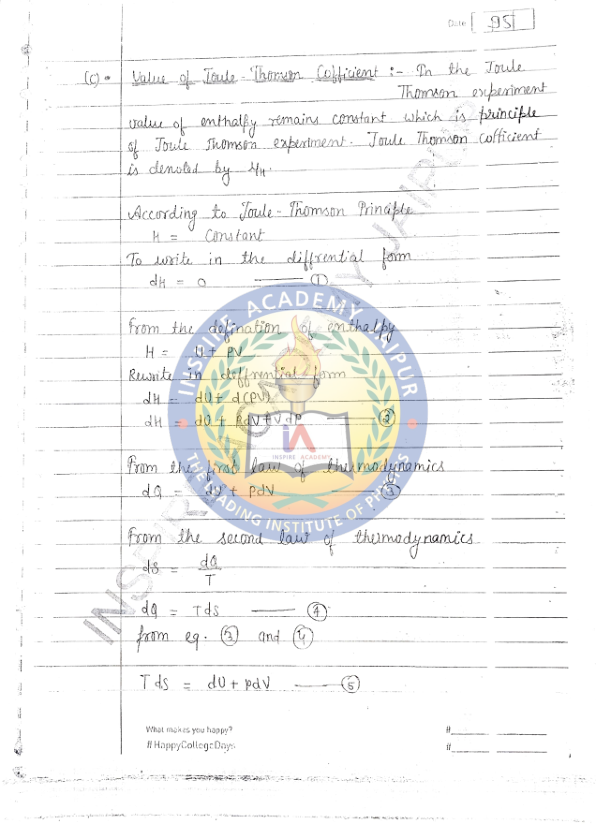 Date 95
(C). Value of Joule-Thomson Cofficient :- In the Joule
Thomson experiment
value of enthalpy remains constant which is principle
of Joule Thomson experiment. Joule Thomson cofficient
is denoted by μH.
According to Joule-Thomson Principle
H = Constant
To write in the diffrential form
dH = 0 ——— ①
From the defination of enthalpy
H = U + PV
Rewrite in deffrential form
dH = dU + d(PV)
dH = dU + PdV + VdP ——— ②
From the first law of thermodynamics
dQ = dU + PdV ——— ③
From the second law of thermodynamics
dS = dQ/T
dQ = TdS ——— ④
from eq. ③ and ④
TdS = dU + pdV ——— ⑤
What makes you happy?
#HappyCollegeDays
#
#
INSPIRE ACADEMY JAIPUR
INSPIRE ACADEMY JAIPUR
iA
INSPIRE ACADEMY
THE LEADING INSTITUTE OF PHYSICS